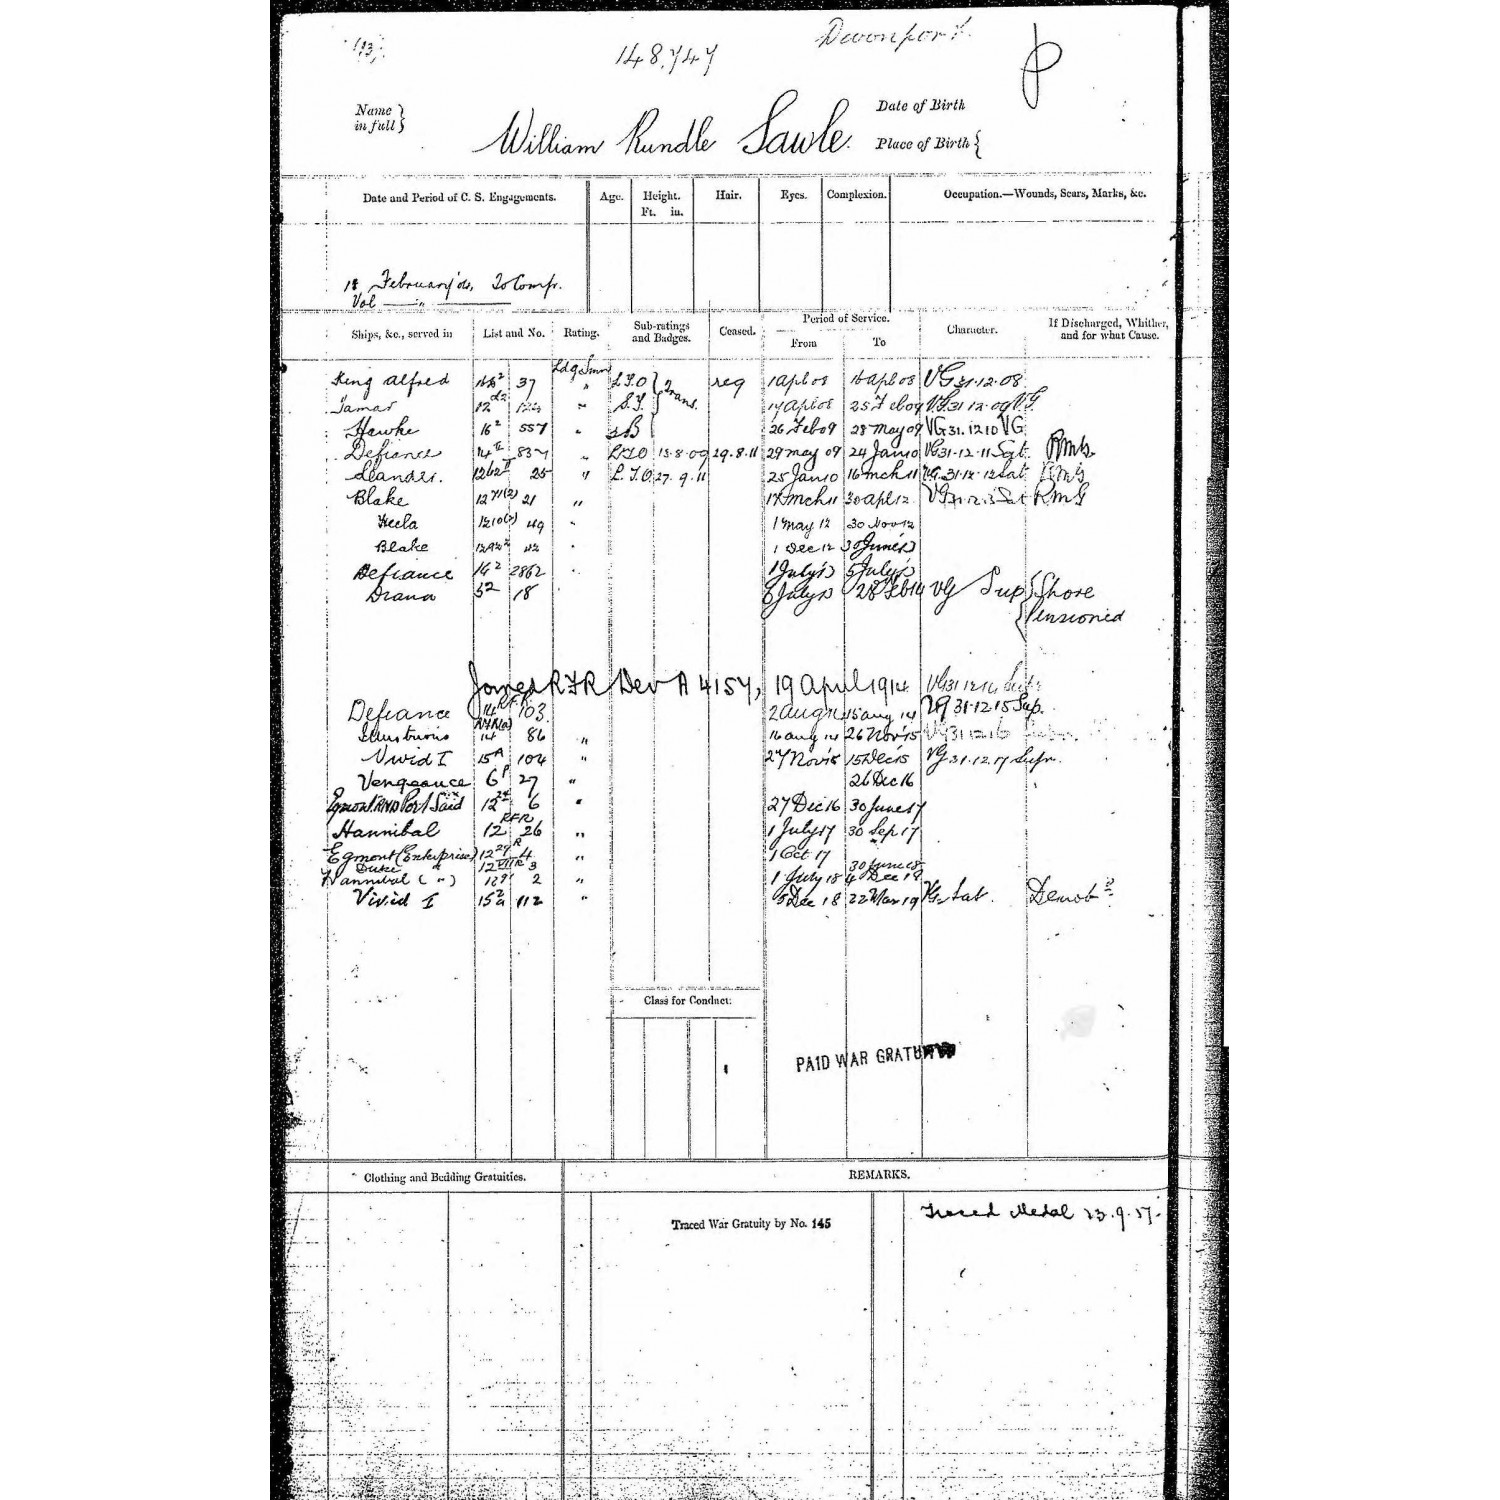 148,747
Devonport
Name in full }
William Rundle Sawle.
Date of Birth
Place of Birth {
Date and Period of C. S. Engagements.
Age.
Height. Ft. in.
Hair.
Eyes.
Complexion.
Occupation.—Wounds, Scars, Marks, &c.
February To Comp.
Vol — " —
Ships, &c., served in
List and No.
Rating.
Sub-ratings and Badges.
Ceased.
Period of Service.
From
To
Character.
If Discharged, Whither, and for what Cause.
King Alfred 37 Ldg Smn L.T.O req 1 Apl 08 16 Apl 08 VG 31.12.08
Tamar 12 124 " S.G. Trans. 17 Apl 08 25 Feb 09 VG 31.12.09 VG
Hawke 16² 557 " 26 Feb 09 28 May 09 VG 31.12.10 VG
Defiance 14 837 " LTO 13.8.09 29.8.11 29 May 09 24 Jan 10 VG 31.12.11 Sat RMG
Leander. 25 " L.T.O 27.9.11 25 Jan 10 16 Mch 11 VG 31.12.12 Sat RMG
Blake 21 " 17 Mch 11 30 Apl 12 RMG
Hecla 49 " 1 May 12 30 Nov 12
Blake 42 " 1 Dec 12 30 June 13
Defiance 14² 2862 " 1 July 13 5 July 13
Diana 5² 18 6 July 13 28 Feb 14 VG Sup { Shore
Pensioned
Joined RFR Dev A 4157, 19 April 1914
Defiance 14 RFR 103. 2 Aug 14 15 Aug 14 VG 31.12.15 Sup.
Illustrious 14 86 " 16 Aug 14 26 Nov 15
Vivid I 15A 104 " 27 Nov 15 15 Dec 15 VG 31.12.17 Supr.
Vengeance 6 27 " 26 Dec 16
Egmont Port Said 12 6 " 27 Dec 16 30 June 17
Hannibal 12 RFR 26 " 1 July 17 30 Sep 17
Egmont (Enterprise) 12 4 " 1 Oct 17 30 June 18
Duke " 12 3
Hannibal ( " ) 2 " 1 July 18 4 Dec 18
Vivid I 15 112 " 5 Dec 18 22 Mar 19 VG Sat. Demob
Class for Conduct.
PAID WAR GRATUITY
Clothing and Bedding Gratuities.
REMARKS.
Traced War Gratuity by No. 145
Traced Medal 23.9.57